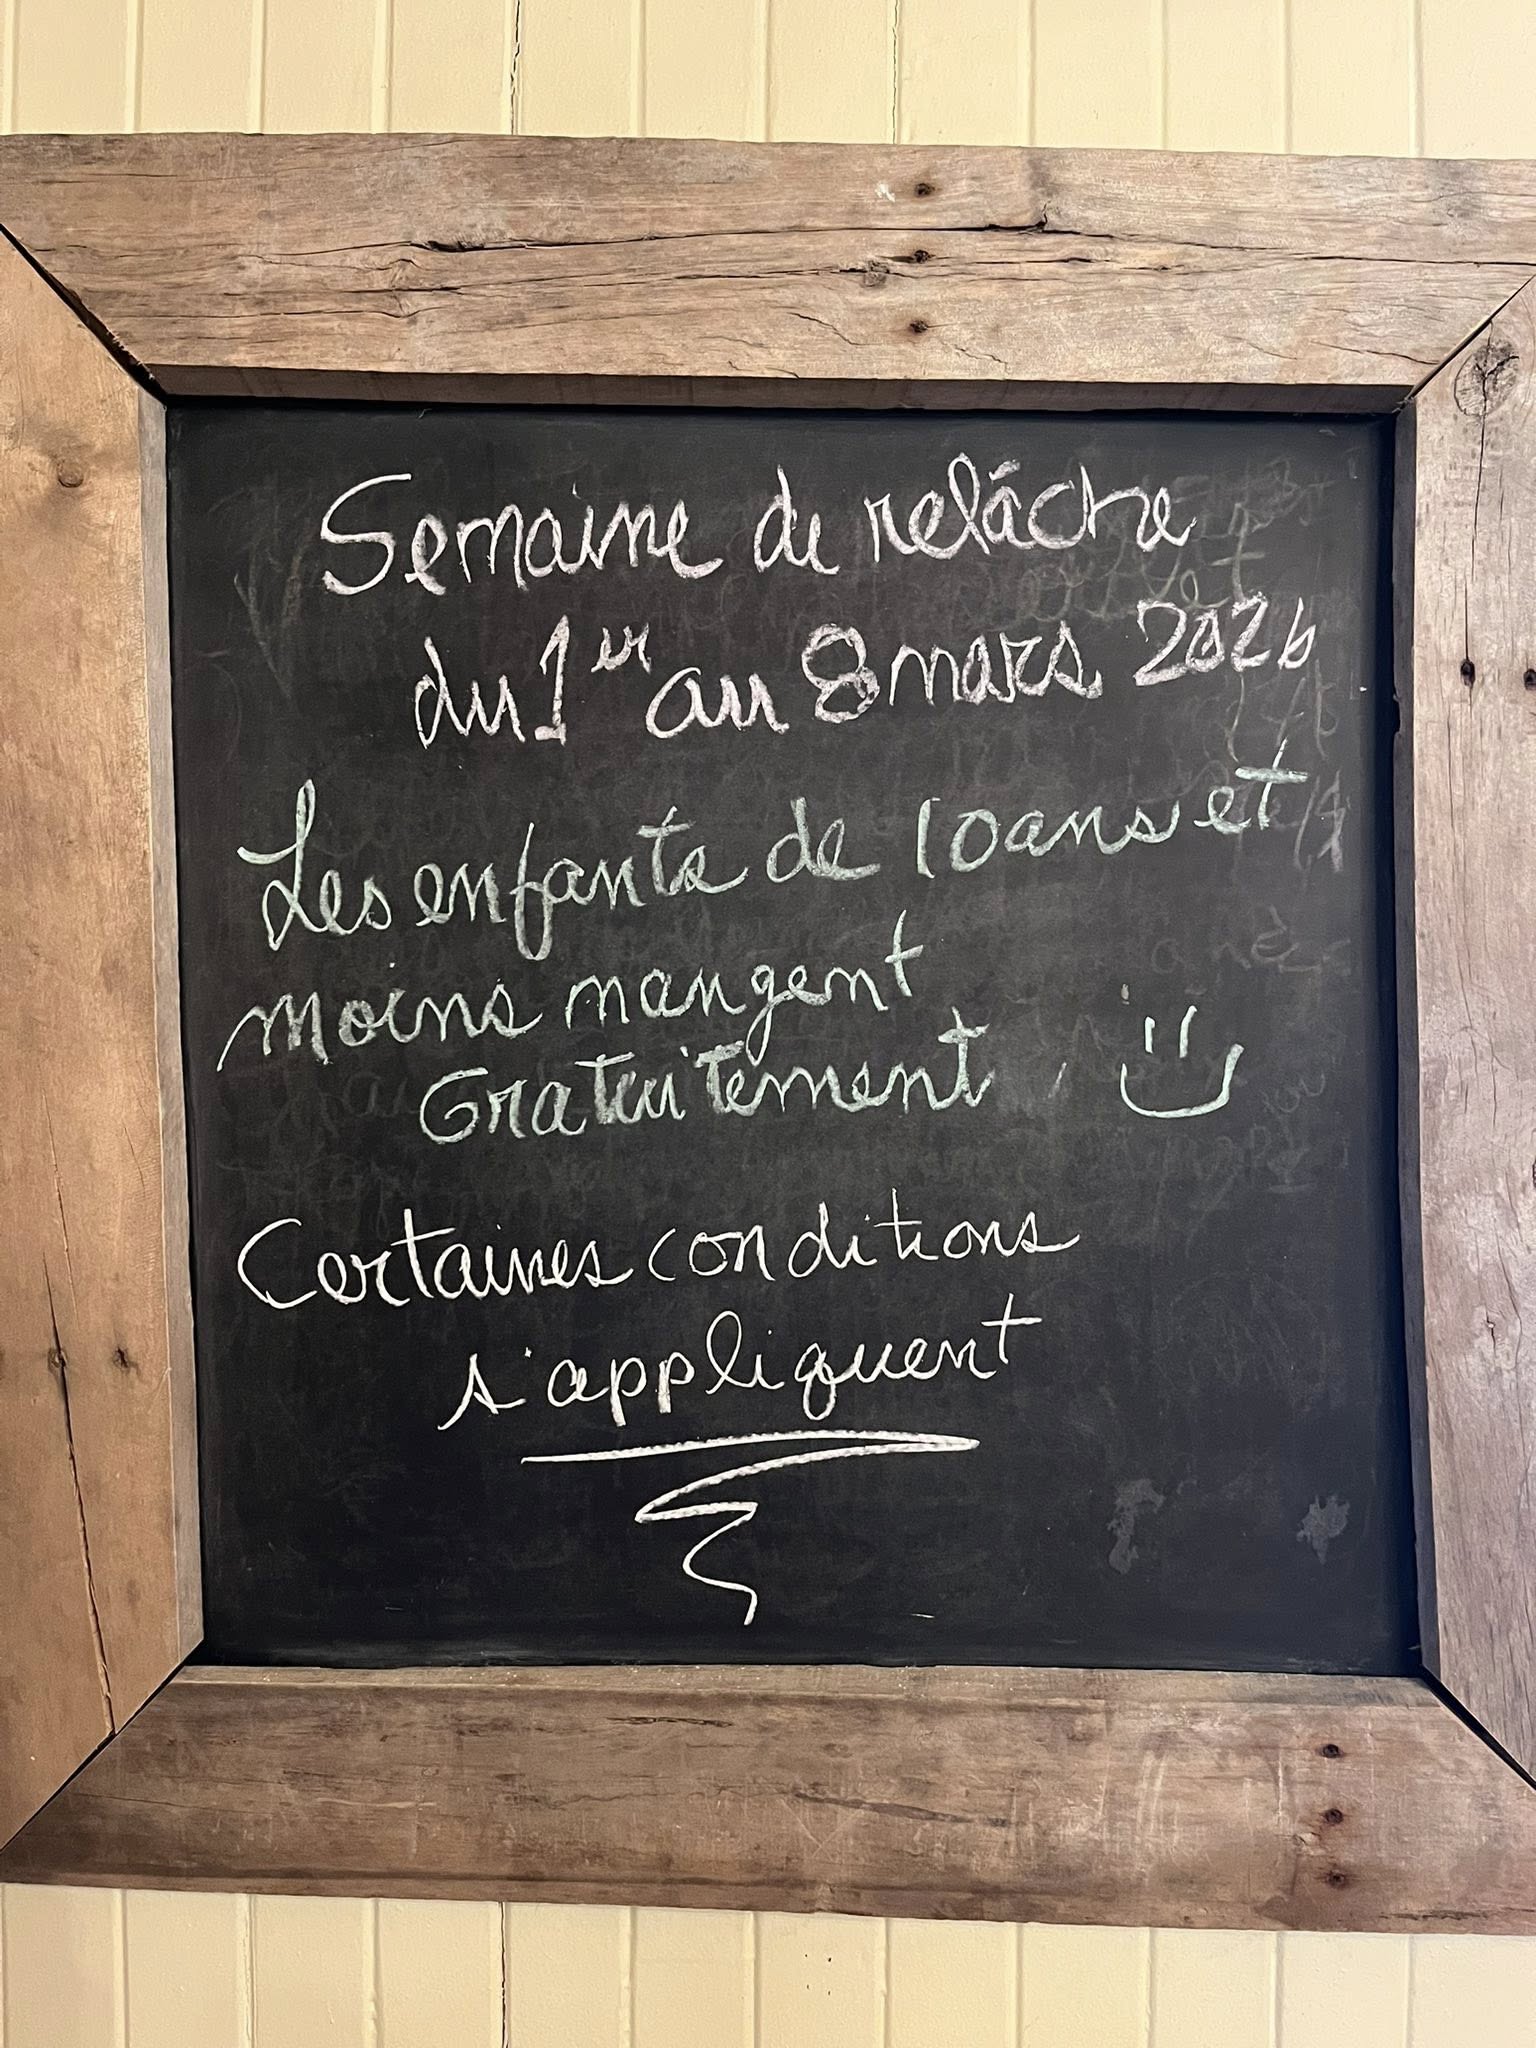 Semaine de relâche
du 1er au 8 mars 2026
Les enfants de 10 ans et
moins mangent
Gratuitement
Certaines conditions
s'appliquent